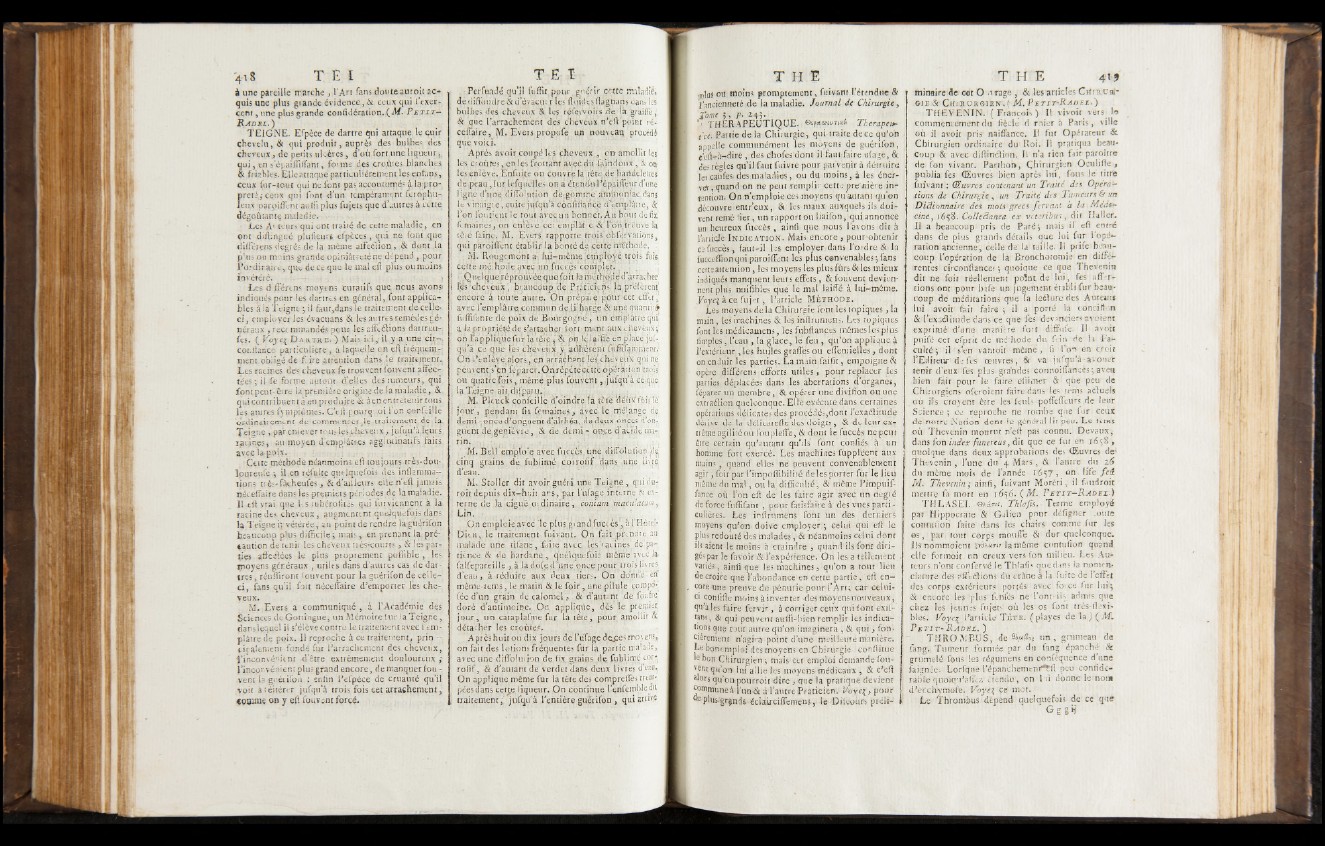 418 T E I
à une pareille marche, l'Art sans doute auroit ac-
quis une plus grande évidence, & ceux qui l'exer-
cent, une plus grande considération. (M. PETIT-
RADEL.)
TEIGNE. Espèce de dartre qui attaque le cuir
chevelu, & qui produit, auprès des bulbes des
cheveux, de petits ulcères, d'où sort une liqueur,
qui, en s'épaississant, forme des croûtes blanches
& friables. Elle attaque particulièrement les enfans,
ceux sur-tout qui ne sont pas accoutumés à la pro-
preté; ceux qui sont d'un tempérament scrophu-
leux paroissent aussi plus sujets que d'autres à cette
dégoûtante maladie.
Les Auteurs qui ont traité de cette maladie, en
ont distingué plusieurs espèces, qui ne sont que
différens degrés de la même affection, & dont la
plus ou moins grande opiniâtreté ne dépend, pour
l'ordinaire, que de ce que le mal est plus ou moins
invétéré.
Les différens moyens curatifs que nous avons
indiqués pour les dartres en général, sont applica-
bles à la Teigne; il faut, dans le traitement de celle-
ci, employer les évacuans & les autres remèdes gé-
néraux, recommandés pour les affections dartreu-
ses. (Voyez DARTRE.) Mais ici, il y a une cir-
constance particulière, à laquelle on est fréquem-
ment obligé de faire attention dans le traitement.
Les racines des cheveux se trouvent souvent affec-
tées; il se forme autour d'elles des tumeurs, qui
font peut-être la première origine de la maladie, &
qui contribuent à en produire & à en entretenir tous
les autres symptômes. C'est pourquoi l'on conseille
ordinairement de commencer le traitement de la
Teigne, par enlever tous les cheveux, jusqu'à leurs
racines, au moyen d'emplâtres agglutinatifs faits
avec la poix.
Cette méthode néanmoins est toujours très-dou-
loureuse; il en résulte quelquefois des inflamma-
tions très-fâcheuses, & d'ailleurs elle n'est jamais
nécessaire dans les premiers périodes de la maladie.
Il est vrai que les tubérosités qui surviennent à la
racine des cheveux, augmentent quelquefois dans
la Teigne invétérée, au point de rendre la guérison
beaucoup plus difficile; mais, en prenant la pré-
caution de tenir les cheveux très-courts, & les par-
ties affectées le plus proprement possible, les
moyens généraux, utiles dans d'autres cas de dar-
tres, réussiront souvent pour la guérison de celle-
ci, sans qu'il soit nécessaire d'emporter les che-
veux.
M. Evers a communiqué, à l'Académie des
Sciences de Gottingue, un Mémoire sur la Teigne,
dans lequel il s'élève contre le traitement avec l'em-
plâtre de poix. Il reproche à ce traitement, prin-
cipalement fondé sur l'arrachement des cheveux,
l'inconvénient d'être extrêmement douloureux;
l'inconvénient plus grand encore, de manquer sou-
vent la guérison: enfin l'espèce de cruauté qu'il
voit à réitérer jusqu'à trois fois cet arrachement,
comme on y est souvent forcé.
T E I
Persuadé qu'il suffit pour guérir cette maladie,
de dissoudre & d'évacuer les fluides stagnans dans les
bulbes des cheveux & les réservoirs de la graisse,
& que l'arrachement des cheveux n'est point né-
cessaire, M. Evers propose un nouveau procédé
que voici.
Après avoir coupé les cheveux, on amollit les
les croûtes, en les frottant avec du saindoux, & on
les enlève. Ensuite on couvre la tête de bandelettes
de peau, sur lesquelles on a étendu l'épaisseur d'une
ligne d'une dissolution de gomme ammoniac dans
le vinaigre, cuite jusqu'à consistance d'emplâtre, &
l'on soutient le tout avec un bonnet. Au bout de six
semaines, on enlève cet emplâtre & l'on trouve la
tête saine. M. Evers rapporte trois observations,
qui paroissent établir la bonté de cette méthode.
M. Rougemont a lui-même employé trois fois
cette méthode avec un succès complet.
Quelque réprouvée que soit la méthode d'arracher
les cheveux, beaucoup de Praticiens la préfèrent
encore à toute autre. On prépare pour cet effet,
avec l'emplâtre commun de litharge & une quantité
suffisante de poix de Bourgogne, un emplâtre qui
a la propriété de s'attacher fortement aux cheveux;
on l'applique sur la tête, & on le laisse en place jus-
qu'à ce que les cheveux y adhèrent suffisamment.
On s'enlève alors, en arrachant les cheveux qui ne
peuvent s'en séparer. On répète cette opération trois
ou quatre fois, même plus souvent, jusqu'à ce que
la Teigne ait disparu.
M. Plenck conseille d'oindre la tête deux fois le
jour, pendant six semaines, avec le mélange de
demi-once d'onguent d'althéa, de deux onces d'on-
guent de genièvre, & de demi-once d'acide ma-
rin.
M. Bell emploie avec succès une dissolution de
cinq grains de sublimé corrosif dans une livre
d'eau.
M. Stoller dit avoir guéri une Teigne, qui du-
roit depuis dix-huit ans, par l'usage interne & ex-
terne de la ciguë ordinaire, conium maculatum,
Lin.
On emploie avec le plus grand succès, à l'Hôtel-
Dieu, le traitement suivant. On fait prendre au
malade une tisane, faite avec les racines de pa-
tience & de bardane, quelquefois même avec la
salsepareille, à la dose d'une once pour trois livres
d'eau, à réduire aux deux tiers. On donne en
même-tems, le matin & le soir, une pilule compo-
sée d'un grain de calomel, & d'autant de soufre
doré d'antimoine. On applique, dès le premier
jour, un cataplasme sur la tête, pour amollir &
détacher les croûtes.
Après huit ou dix jours de l'usage de ces moyens,
on fait des lotions fréquentes sur la partie malade,
avec une dissolution de six grains de sublimé cor-
rosif, & d'autant de verdet dans deux livres d'eau.
On applique même sur la tête des compresses trem-
pées dans cette liqueur. On continue l'ensemble du
traitement, jusqu'à l'entière guérison, qui arrive
T H E
plus ou moins promptement, suivant l'étendue &
l'ancienneté de la maladie. Journal de Chirurgie,
Tome 3, p. 243.
THÉRAPEUTIQUE. Therapeu-
tice. Partie de la Chirurgie, qui traite de ce qu'on
appelle communément les moyens de guérison,
c'est-à-dire, des choses dont il faut faire usage, &
des règles qu'il faut suivre pour parvenir à détruire
les causes des maladies, ou du moins, à les éner-
ver, quand on ne peut remplir cette première in-
tention. On n'emploie ces moyens qu'autant qu'on
découvre entr'eux, & les maux auxquels ils doi-
vent remédier, un rapport ou liaison, qui annonce
un heureux succès, ainsi que nous l'avons dit à
l'article INDICATION. Mais encore, pour obtenir
ce succès, faut-il les employer dans l'ordre & la
succession qui paroissent les plus convenables; sans
cette attention, les moyens les plus sûrs & les mieux
indiqués manquent leurs effets, & souvent devien-
nent plus nuisibles que le mal laissé à lui-même.
Voyez à ce sujet, l'article MÉTHODE.
Les moyens de la Chirurgie sont les topiques, la
main, les machines & les instrumens. Les topiques
sont les médicamens, les substances mêmes les plus
simples, l'eau, la glace, le feu, qu'on applique à
l'extérieur, les huiles grasses ou essentielles, dont
on enduit les parties. La main saisit, empoigne &
opère différens efforts utiles, pour replacer les
parties déplacées dans les aberrations d'organes,
séparer un membre, & opérer une division ou une
extraction quelconque. Elle exécute dans certaines
opérations délicates des procédés, dont l'exactitude
dérive de la délicatesse des doigts, & de leur ex-
trême agilité ou souplesse, & dont le succès ne peut
être certain qu'autant qu'ils sont confiés à un
homme fort exercé. Les machines suppléent aux
mains, quand elles ne peuvent convenablement
agir, soit par l'impossibilité de les porter sur le lieu
même du mal, ou la difficulté, & même l'impuis-
sance où l'on est de les faire agir avec un degré
de force suffisant, pour satisfaire à des vues parti-
culières. Les instrumens sont un des derniers
moyens qu'on doive employer; celui qui est le
plus redouté des malades, & néanmoins celui dont
ils aient le moins à craindre, quand ils sont diri-
gés par le savoir & l'expérience. On les a tellement
variés, ainsi que les machines, qu'on a tout lieu
de croire que l'abondance en cette partie, est en-
core une preuve de pénurie pour l'Art; car celui-
ci consiste moins à inventer des moyens nouveaux,
qu'à les faire servir, à corriger ceux qui sont exis-
tans, & qui peuvent aussi-bien remplir les indica-
tions que tout autre qu'on imaginera, & qui, fon-
cièrement n'agira point d'une meilleure manière.
Le bon emploi des moyens en Chirurgie constitue
le bon Chirurgien; mais cet emploi demande sou-
vent qu'on lui allie les moyens médicaux, & c'est
alors qu'on pourroit dire, que la pratique devient
commune à l'un & à l'autre Praticien. Voyez, pour
de plus grands éclaircissemens, le Discours préli-
T H E 419
minaire de cet Ouvrage, & les articles CHIRUR-
GIE & CHIRURGIEN. (M. PETIT-RADEL.)
THEVENIN. (François) Il vivoit vers le
commencement du siècle dernier à Paris, ville
où il avoit pris naissance. Il fut Opérateur &
Chirurgien ordinaire du Roi. Il pratiqua beau-
coup & avec distinction. Il n'a rien fait paroître
de son vivant. Parthon, Chirurgien Oculiste,
publia ses Œuvres bien après lui, sous le titre
suivant; Œuvres contenant un Traité des Opéra-
tions de Chirurgie, un Traité des Tumeurs & un
Dictionnaire des mots grecs servant à la Méde-
cine, 1658. Collectanea ex veteribus, dit Haller.
Il a beaucoup pris de Paré; mais il est entré
dans de plus grands détails que lui sur l'opé-
ration ancienne, celle de la taille. Il prise beau-
coup l'opération de la Bronchotomie en diffé-
rentes circonstances; quoique ce que Thevenin
dit ne soit réellement point de lui, ses asser-
tions ont pour base un jugement établi sur beau-
coup de méditations que la lecture des Auteurs
lui avoit fait faire; il a porté la concision
& l'exactitude dans ce que ses devanciers avoient
exprimé d'une manière fort diffuse. Il avoit
puisé cet esprit de méthode du sein de la Fa-
culté; il s'en vantoit même, si l'on en croit
l'Éditeur de ses Œuvres, & va jusqu'à avouer
tenir d'eux ses plus grandes connoissances; aveu
bien fait pour le faire estimer & que peu de
Chirurgiens oseroient faire dans les tems actuels
où ils croyent être les seuls possesseurs de leur
Science; ce reproche ne tombe que sur ceux
de notre Nation dont le général lit peu. Le tems
où Thevenin mourut n'est pas connu. Devaux,
dans son index funereus, dit que ce fut en 1658,
quoique dans deux approbations des Œuvres de
Thevenin, l'une du 4 Mars, & l'autre du 26
du même mois de l'année 1657, on lise feu
M. Thevenin; ainsi, suivant Moreri, il faudroit
mettre sa mort en 1656. (M. PETIT-RADEL)
THLASEI. Thlasis. Terme employé
par Hippocrate & Galien pour désigner toute
contusion faite dans les chairs comme sur les
os, par tout corps mousse & dur quelconque.
Ils nommoient la même contusion quand
elle formoit un creux vers son milieu. Les Au-
teurs n'ont conservé le Thlasis que dans la nomen-
clature des affections du crâne à la suite de l'effet
des corps extérieurs portés avec force sur lui;
& encore les plus sensés ne l'ont-ils admis que
chez les jeunes sujets où les os sont très-flexi-
bles. Voyez l'article TÊTE. (playes de la) (M.
PETIT-RADEL.)
THROMBUS, de un, grumeau de
sang. Tumeur formée par du sang épanché &
grumelé sous les tégumens en conséquence d'une
saignée. Lorsque l'épanchement est peu considé-
rable quoiqu'assez étendu, on lui donne le nom
d'ecchymose. Voyez ce mot.
Le Thrombus dépend quelquefois de ce que
G g g ij